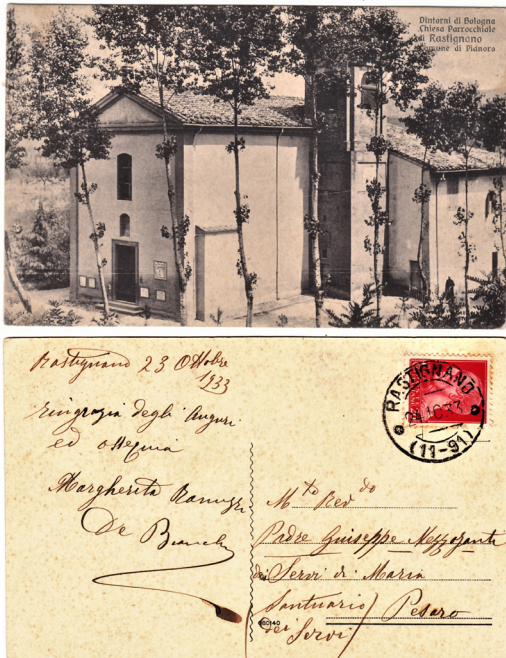 Dintorni di Bologna
Chiesa Parrocchiale
di Rastignano
Comune di Pianoro
Rastignano 23 Ottobre
1933
ringrazia degli auguri
ed ossequia
Margherita Ranuzzi
De Bianchi
RASTIGNANO
10.33
(11-91)
M^to Rev^do
Padre Giuseppe Mezzozanti
dei Servi di Maria
Santuario Pesaro
dei Servi
60140